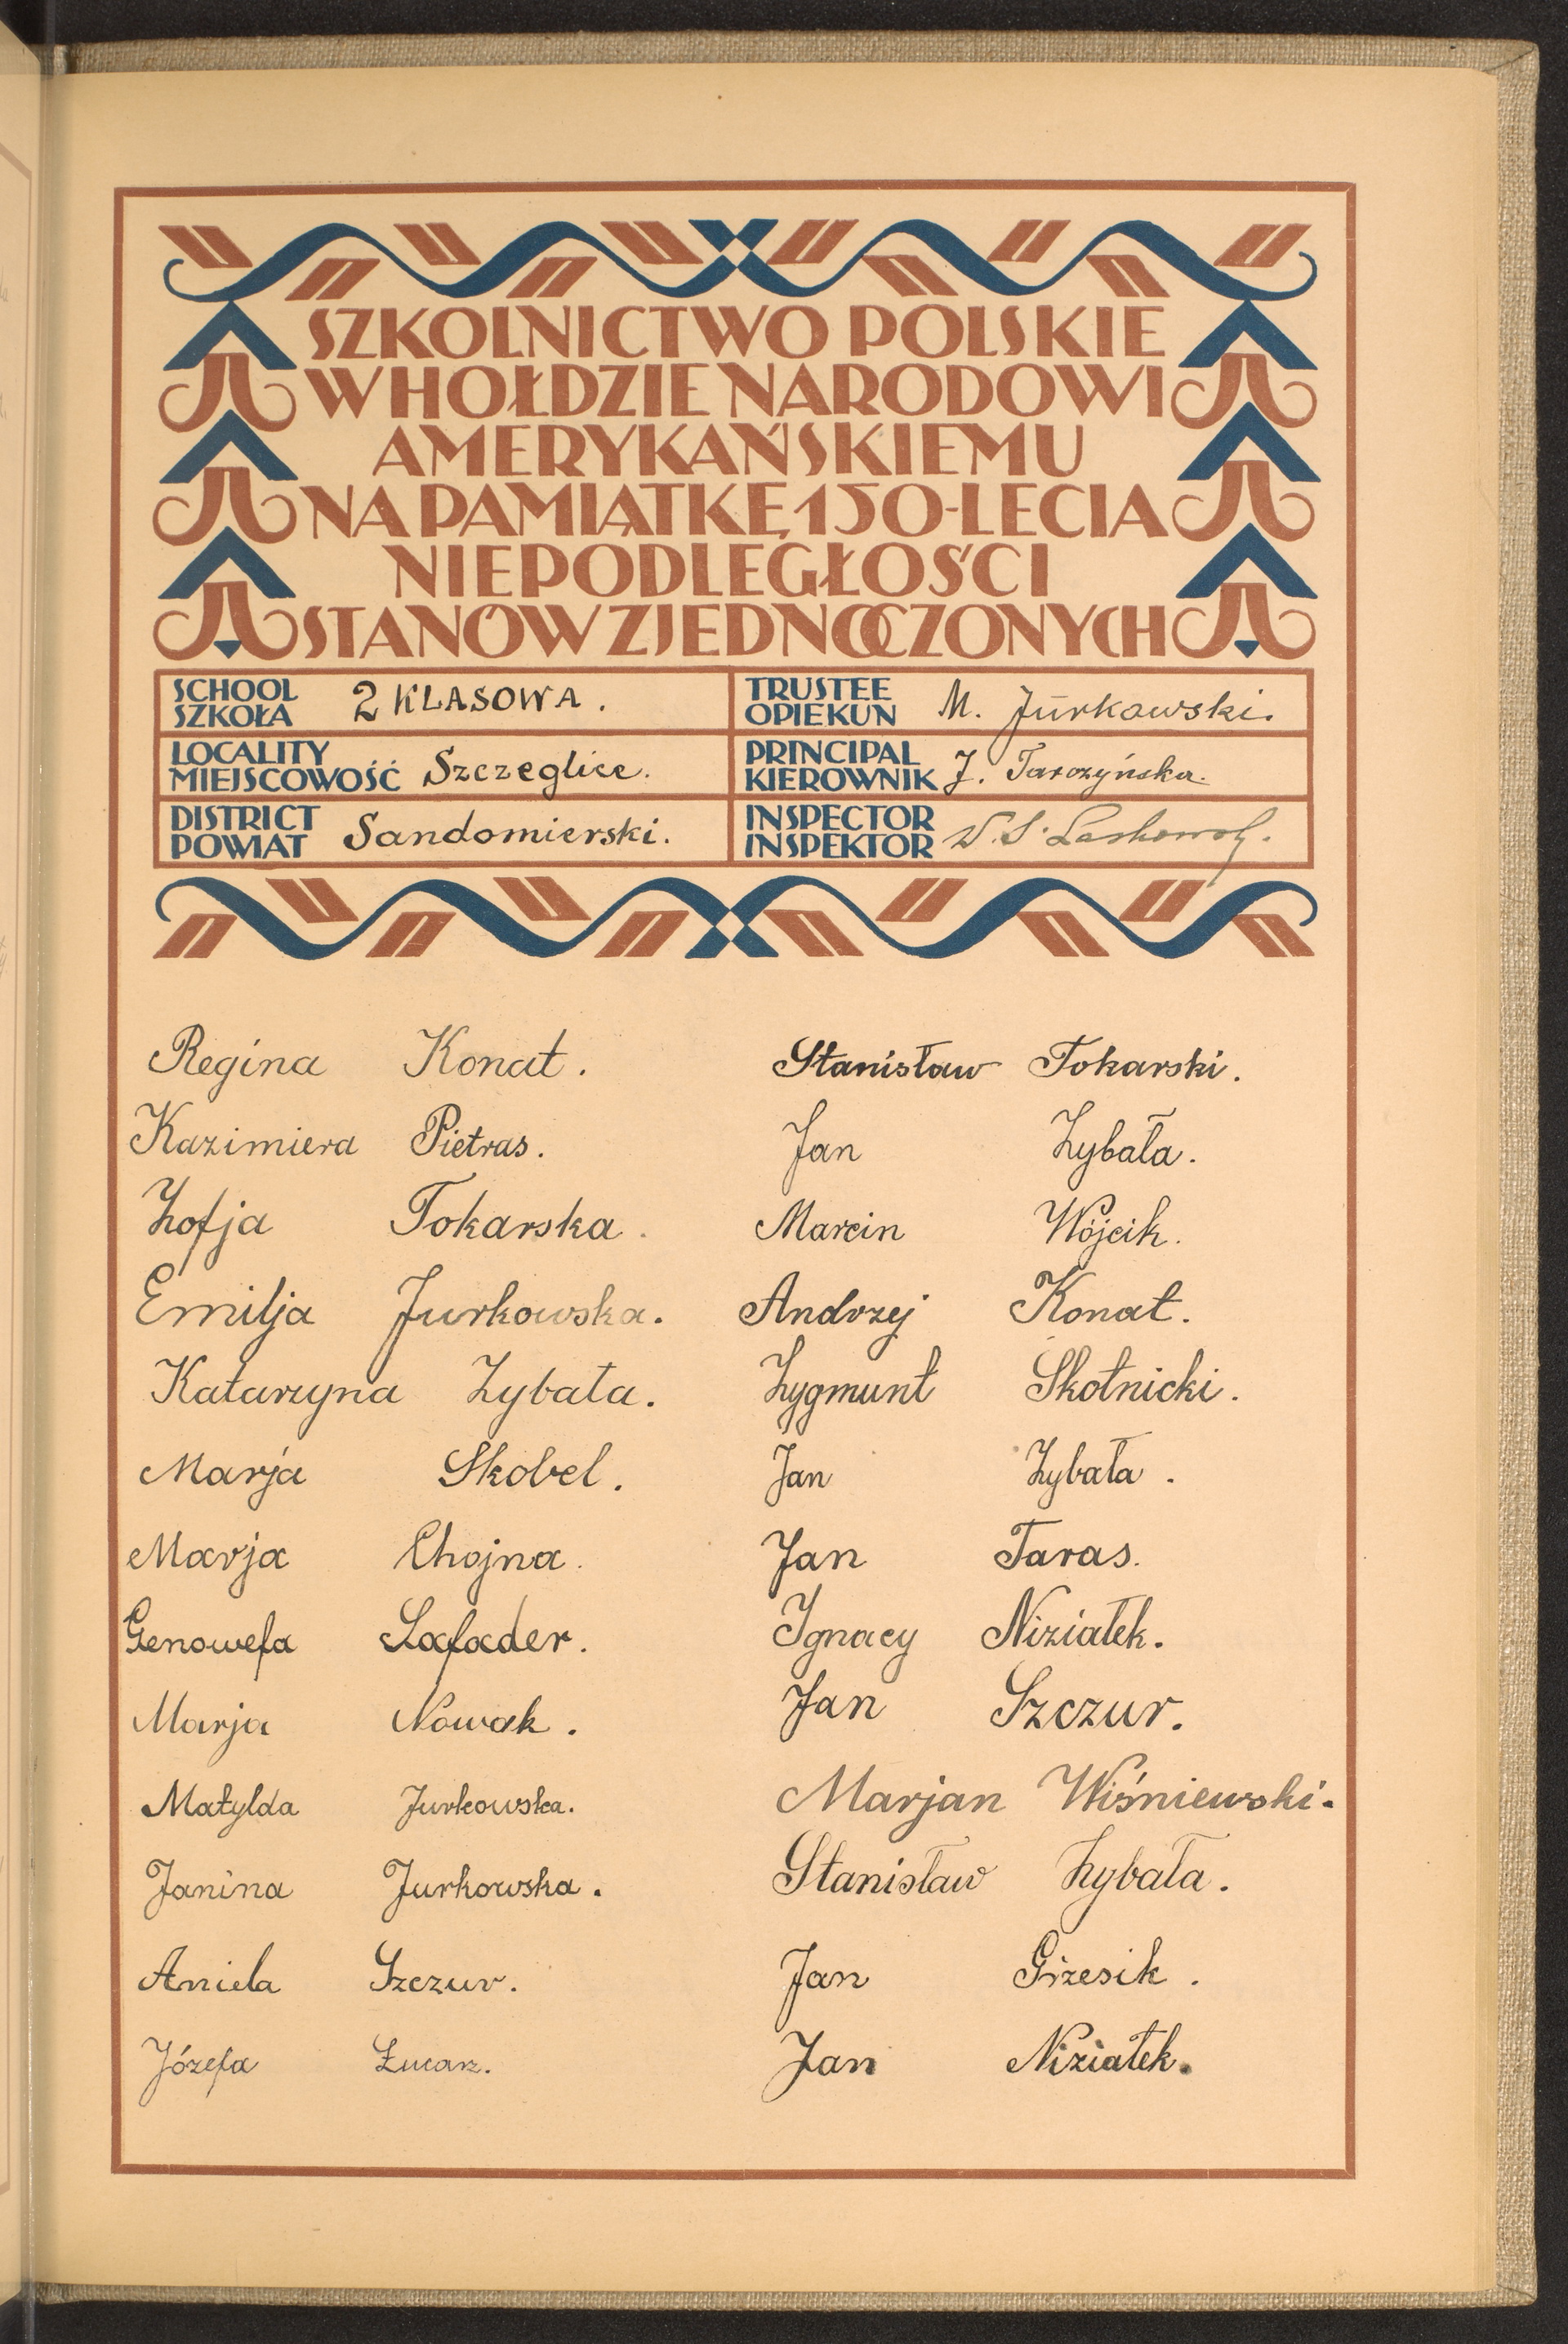 SZKOLNICTWO POLSKIE
W HOŁDZIE NARODOWI
AMERYKAŃSKIEMU
NA PAMIĄTKĘ 150-LECIA
NIEPODLEGŁOŚCI
STANÓW ZJEDNOCZONYCH
SCHOOL
SZKOŁA 2 KLASOWA.
TRUSTEE
OPIEKUN M. Jurkowski.
LOCALITY
MIEJSCOWOŚĆ Szczeglice.
PRINCIPAL
KIEROWNIK J. Tarczyńska.
DISTRICT
POWIAT Sandomierski.
INSPECTOR
INSPEKTOR
Regina Konat.
Kazimiera Pietras.
Zofja Tokarska.
Emilja Jurkowska.
Katarzyna Zybała.
Marja Skobel.
Marja Chojna.
Genowefa Lafader.
Marja Nowak.
Matylda Jurkowska.
Janina Jurkowska.
Aniela Szczur.
Józefa
Stanisław Tokarski.
Jan Zybała.
Marcin Wójcik.
Andrzej Konat.
Zygmunt Skotnicki.
Jan Zybała.
Jan Taras.
Ignacy Niziałek.
Jan Szczur.
Marjan Wiśniewski.
Stanisław Zybała.
Jan Grzesik.
Jan Niziałek.